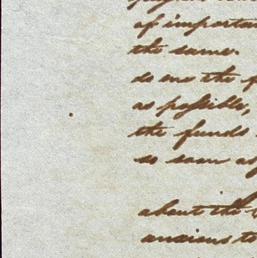 of importan
the same.
do me the f
as possible,
the funds
so soon as
about the
anxious to